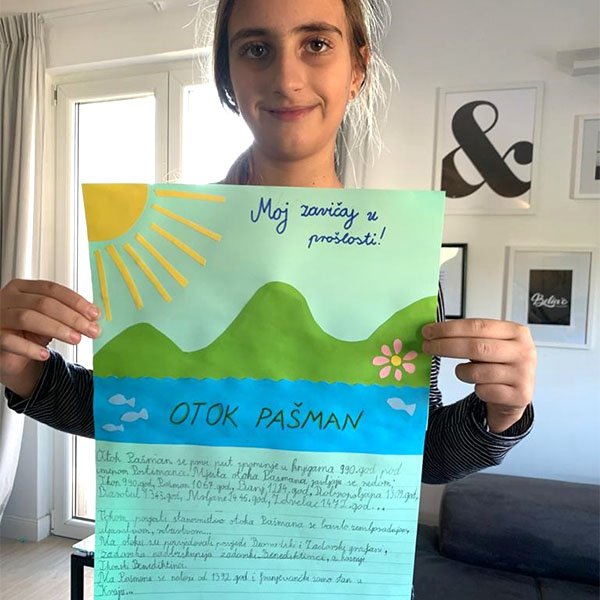 Moj zavičaj u
prošlosti!
&
Believe
OTOK PAŠMAN
Otok Pašman se prvi put spominje u knjigama 990.god pod
imenom Postimana. Mjesta otoka Pašmana javljaju se redom:
Tkon 990.god, Pašman 1067.god, Banj 1214.god, Dobropoljana 1309.god,
Barotul 1343.god, Mrljane 1446.god, Ždrelac 1472.god...
Tokom povijesti stanovništvo otoka Pašmana se bavilo zemljoradnjom,
ribarstvom...
Na otoku su posjedovali posjede Biogradski i Zadarski
zadarska nadbiskupija zadarski Benediktinci, a kasnije
Tkonski Benediktinci.
Na Pašmanu se nalazi od 1392.god i franjevački samostan u
Kraju...